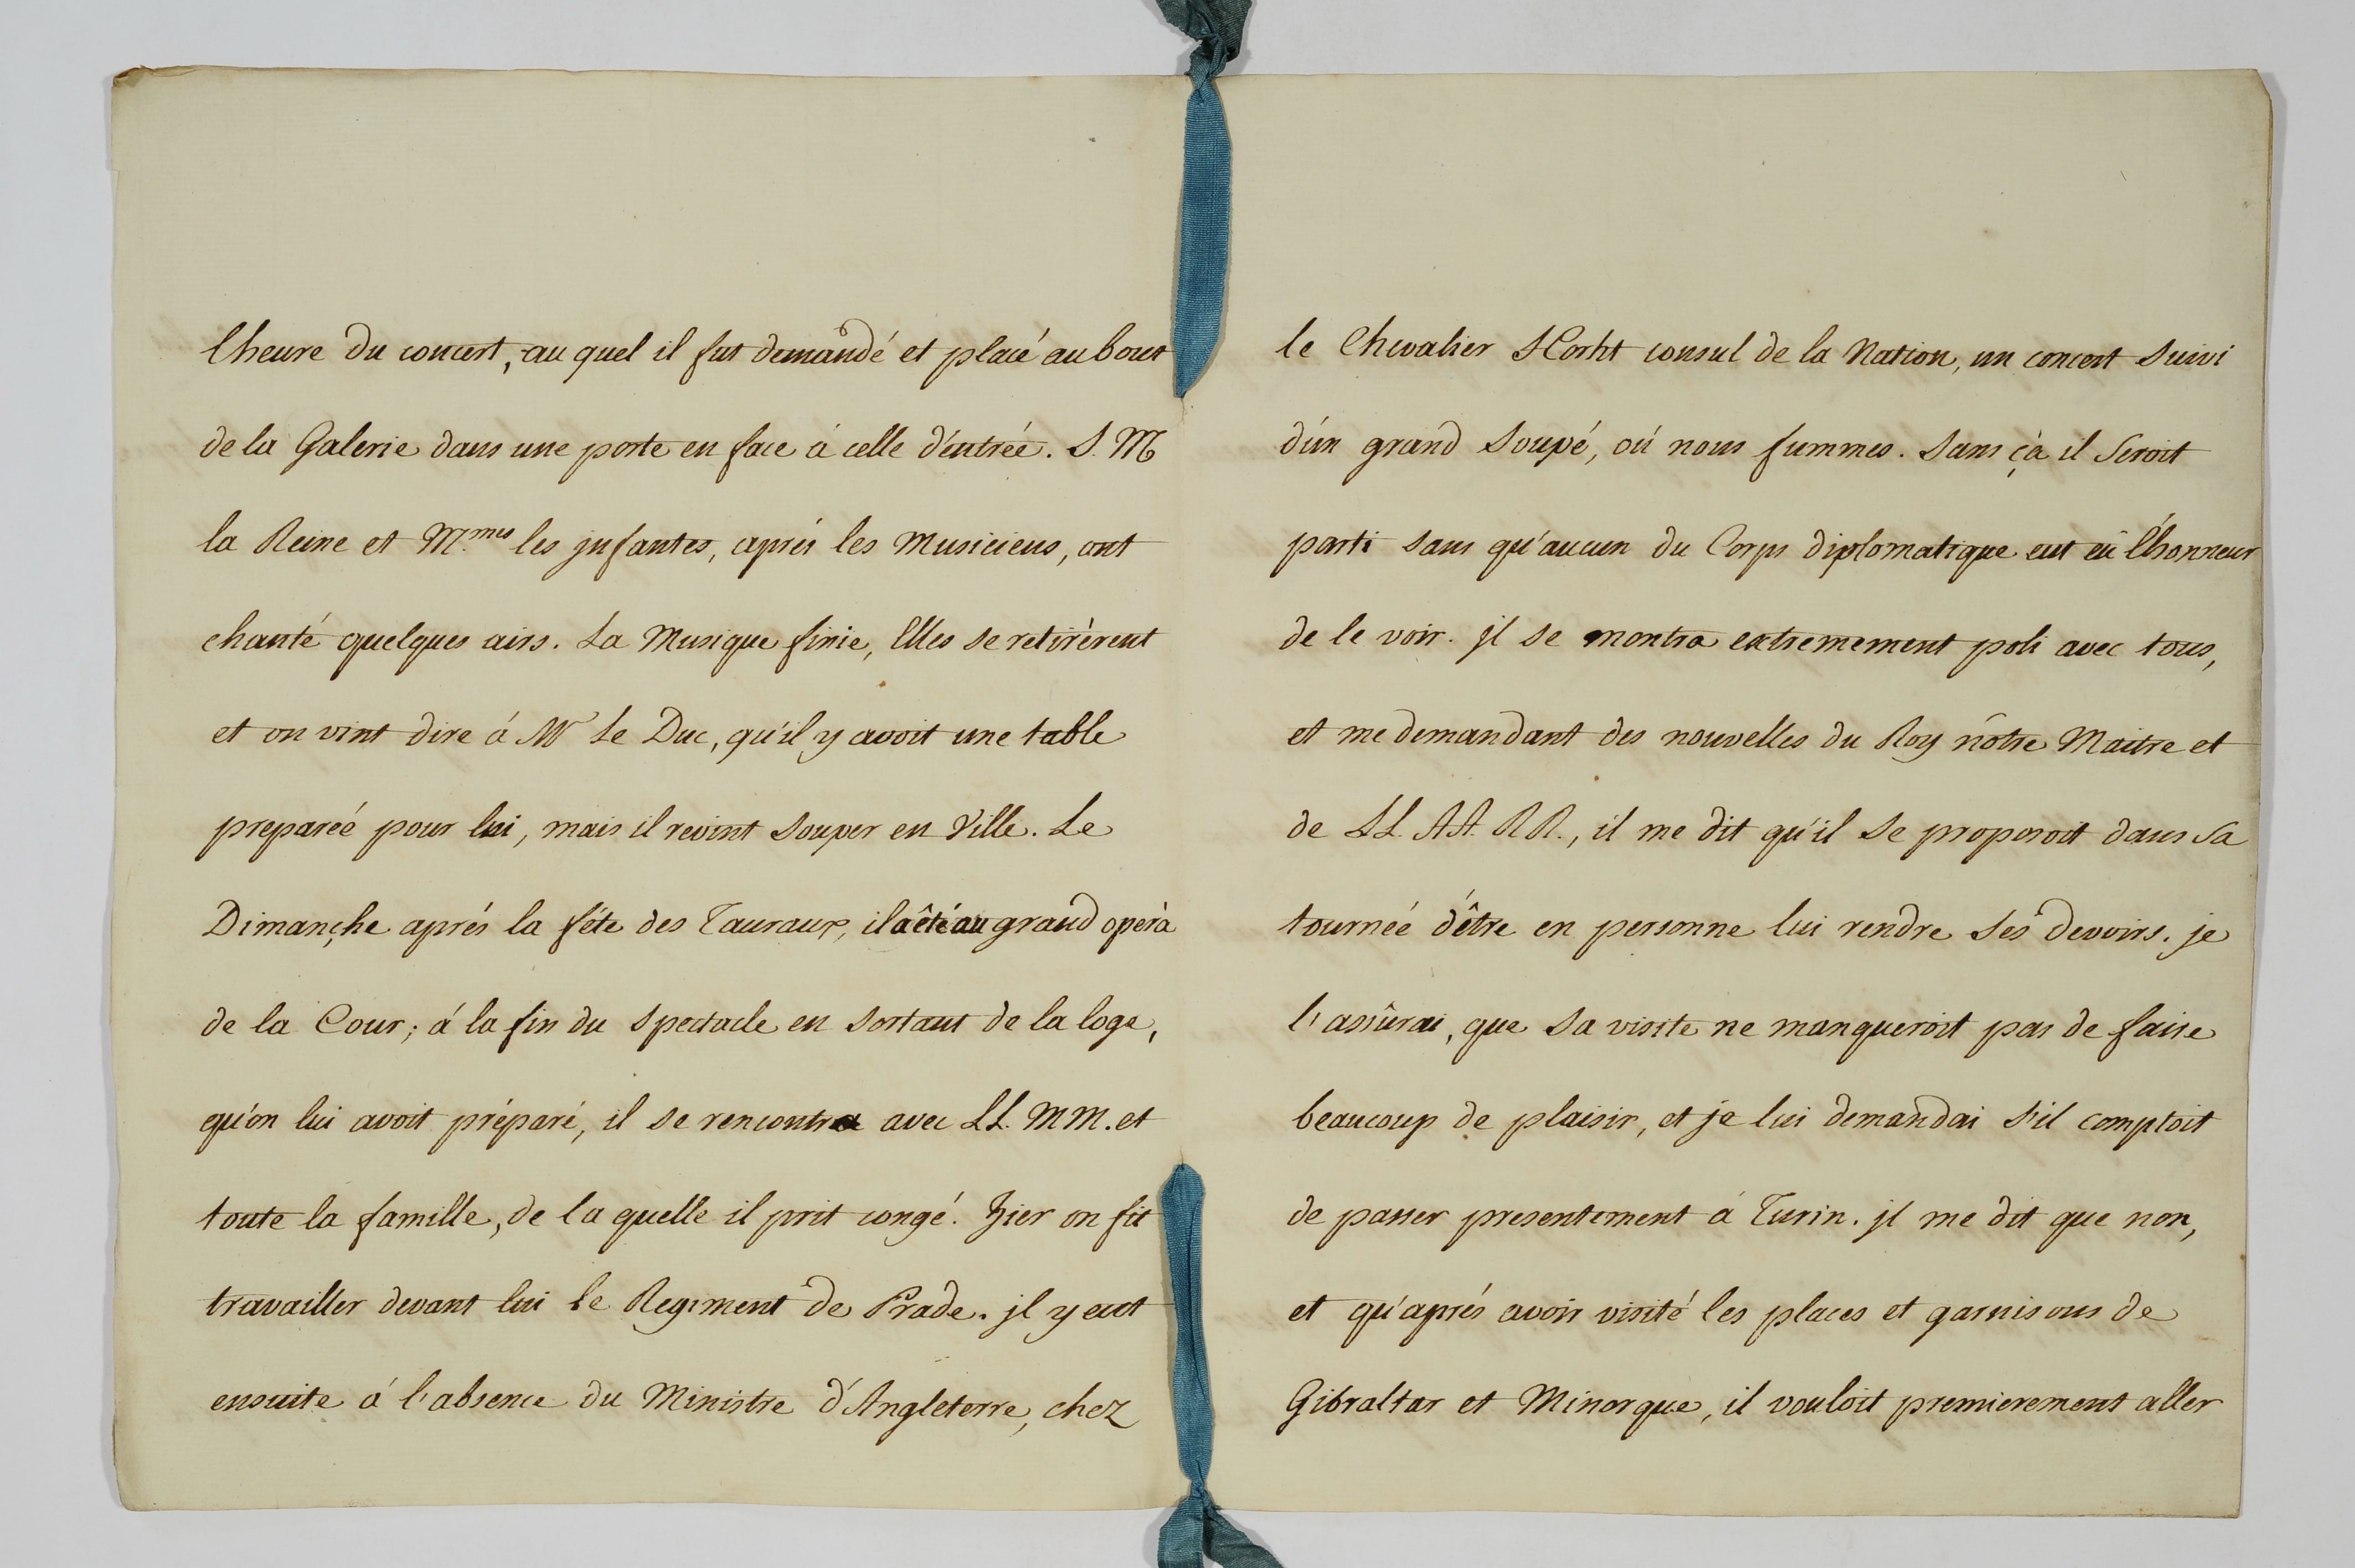 l'heure du concert, au quel il fut demandé et placé au bout
de la Galerie dans une porte en face à celle d'entrée. S. M
la Reine et M.mes les jnfantes, aprés les Musiciens, ont
chanté quelques airs. La Musique finie, Elles se retirèrent
et on vint dire á Mr Le Duc, qu'il y avoit une table
preparéé pour lui, mais il revint souper en Ville. Le
Dimançhe aprés la féte des Tauraux, il a êté au grand operà
de la Cour; á la fin du spectacle en sortant de la loge,
qu'on lui avoit préparé, il se rencontra avec LL. MM. et
toute la famille, de la quelle il prit congé. Hier on fit
travailler devant lui le Regiment de Prade. jl y eut
ensuite á l'absence du Ministre d'Angleterre, chez
le Chevalier consul de la Nation, un concert suivi
d'un grand soupé, oú nous fummes. Sans çà il seroit
parti sans qu'aucun du Corps diplomatique eut eû l'honneur
de le voir. jl se montra extremement poli avec tous,
et me demandant des nouvelles du Roy nôtre Maitre et
de LL. AA. RR., il me dit qu'il se proposoit dans sa
tournéé d'être en personne lui rendre ses devoirs. je
l'assûrai, que sa visite ne manqueroit pas de faire
beaucoup de plaisir, et je lui demandai s'il comptoit
de passer presentement á Turin. jl me dit que non,
et qu'aprés avoir visité les places et garnisons de
Gibraltar et Minorque, il vouloit premierement aller